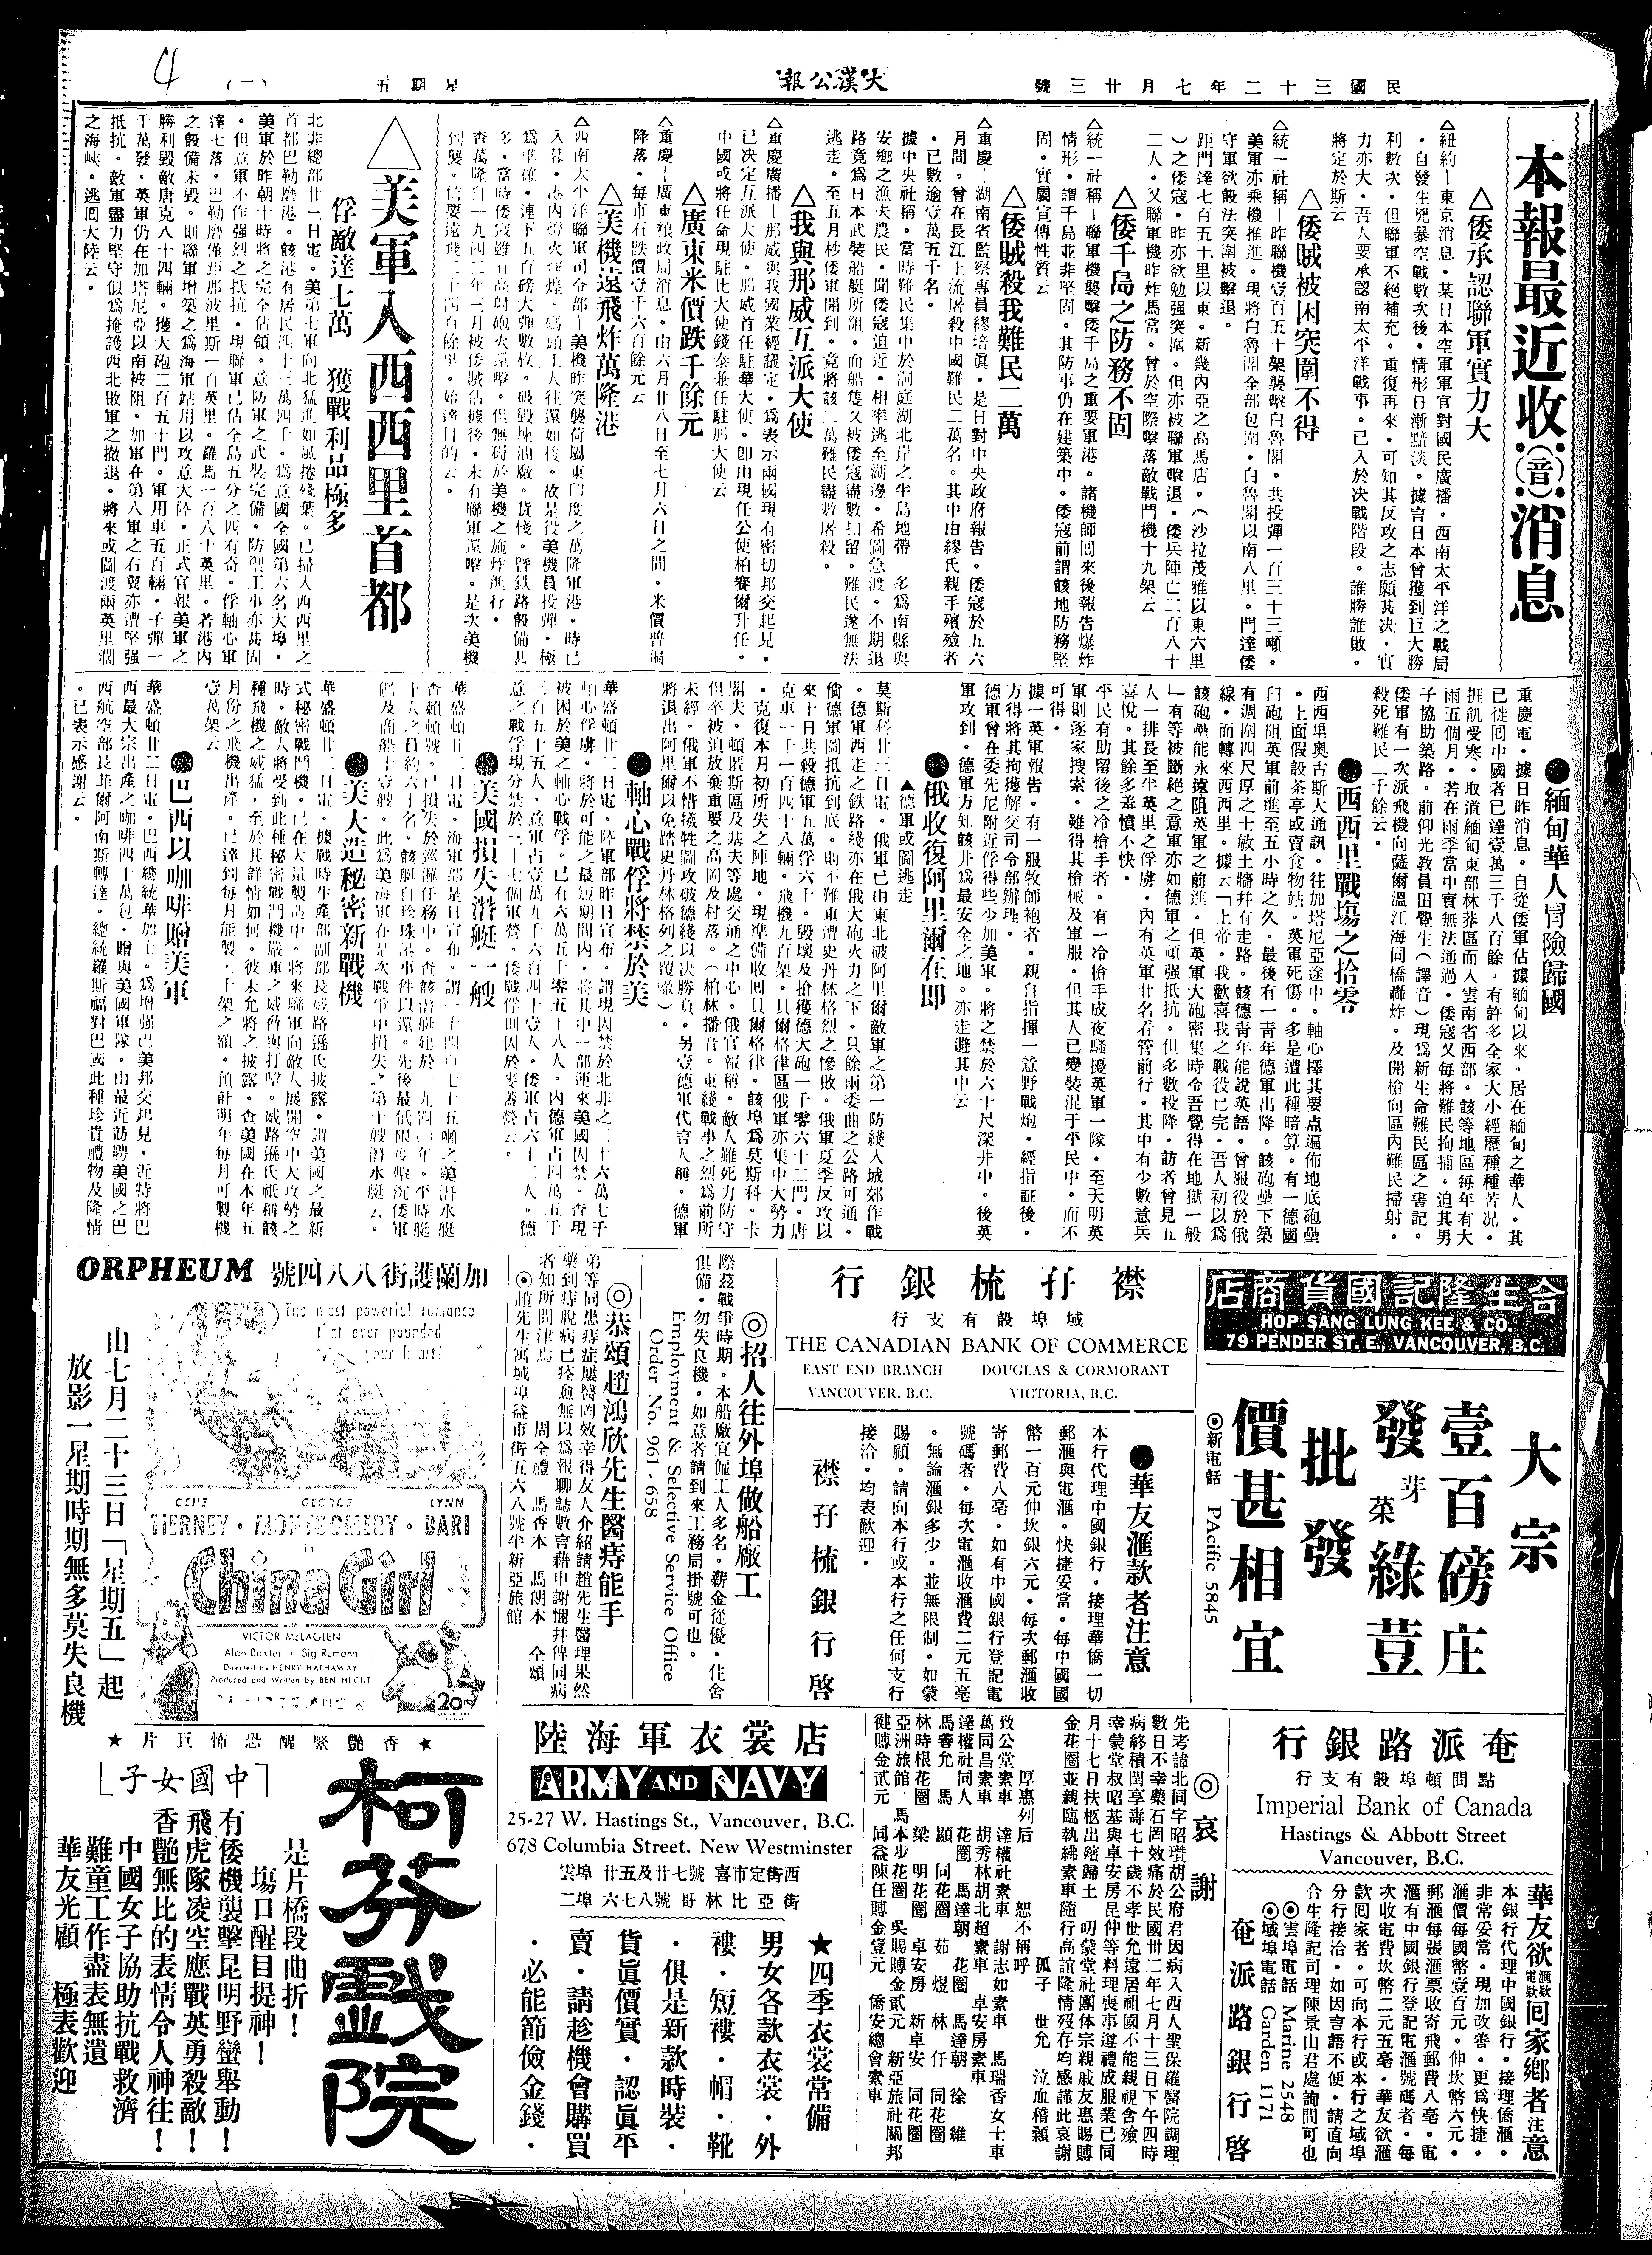 民國三十二年七月廿三號
大漢公報
星期五
(一)
4
本報最近收(音)消息
△倭承認聯軍實力大
△紐約—東京消息。某日本空軍軍官對國民廣播。西南太平洋之戰局
。自發生兇暴空戰數次後。情形日漸黯淡。據言日本曾獲到巨大勝
利數次。但聯軍不絕補充。重復再來。可知其反攻之志願甚决。實
力亦大。吾人要承認南太平洋戰事。已入於决戰階段。誰勝誰敗。
將定於斯云
△倭賊被困突圍不得
△統一社稱—昨聯機壹百五十架襲擊白魯閣。共投彈一百三十三噸。
美軍亦乘機推進。現將白魯閣全部包圍。白魯閣以南八里。門達倭
守軍欲設法突圍被擊退。
距門達七百五十里以東。新幾內亞之高馬店。(沙拉茂雅以東六里
)之倭寇。昨亦欲勉强突圍。但亦被聯軍擊退。倭兵陣亡二百八十
二人。又聯軍機昨炸馬當。曾於空際擊落敵戰鬥機十九架云
△倭千島之防務不固
△統一社稱—聯軍機襲擊倭千島之重要軍港。諸機師回來後報告爆炸
情形。謂千島並非堅固。其防事仍在建築中。倭寇前謂該地防務堅
固。實屬宣傳性質云
△倭賊殺我難民二萬
△重慶—湖南省監察專員繆培眞。是日對中央政府報告。倭寇於五六
月間。曾在長江上流屠殺中國難民二萬名。其中由繆氏親手殯殮者
。已數逾壹萬五千名。
據中央社稱。當時難民集中於洞庭湖北岸之半島地帶 多爲南縣與
安鄉之漁夫農民。聞倭寇迫近。相率逃至湖邊。希圖急渡。不期退
路竟爲日本武裝船艇所阻。而船隻又被倭寇盡數扣留。難民遂無法
逃走。至五月杪倭軍開到。竟將該二萬難民盡數屠殺。
△我與那威互派大使
△重慶廣播—那威與我國業經議定。爲表示兩國現有密切邦交起見。
已决定互派大使。那威首任駐華大使。卽由現任公使柏賽爾升任。
中國或將任命現駐比大使錢泰兼任駐那大使云
△廣東米價跌千餘元
△重慶—廣東粮政局消息。由六月廿八日至七月六日之間。米價普遍
降落。每市石跌價壹千六百餘元云
△美機遠飛炸萬隆港
△西南太平洋聯軍司令部—美機昨突襲荷屬東印度之萬隆軍港。時已
入暮。港內燈火輝煌。碼頭工人往還如梭。故是役美機員投彈。極
爲準確。連下五百磅大彈數枚。破毀煉油廠。貨棧。曁鉄路設備甚
多。當時倭寇雖有高射砲火還擊。但無碍於美機之施炸進行。
查萬隆自一九四二年三月被倭賊佔據後。未有聯軍還擊。是次美機
到襲。信要遠飛二十四百餘里。始達目的云。
△美軍入西西里首都
俘敵達七萬 獲戰利品極多
北非總部廿二日電。美第七軍向北猛進如風捲殘葉。已掃入西西里之
首都巴勒磨港。該港有居民四十三萬四千。爲意國全國第六名大埠。
美軍於昨朝十時將之完全佔領。意防軍之武裝完備。防禦工事亦甚固
。但意軍不作强烈之抵抗。現聯軍已佔全島五分之四有奇。俘軸心軍
達七萬。巴勒磨僅距那波里斯一百英里。羅馬一百八十英里。若港內
之設備未毀。則聯軍增築之爲海軍站用以攻意大陸。正式官報美軍之
勝利毀敵唐克八十四輛。獲大砲二百五十門。軍用車五百輛。子彈一
千萬發。英軍仍在加塔尼亞以南被阻。加軍在第八軍之右翼亦遭堅强
抵抗。敵軍盡力堅守似爲掩護西北敗軍之撤退。將來或圖渡兩英里濶
之海峽。逃囘大陸云。
●緬甸華人冒險歸國
重慶電。據日昨消息。自從倭軍佔據緬甸以來。居在緬甸之華人。其
已徙囘中國者已達壹萬三千八百餘。有許多全家大小經歷種種苦況。
捱飢受寒。取道緬甸東部林莽區而入雲南省西部。該等地區每年有大
雨五個月。若在雨季當中實無法通過。倭寇又每將難民拘捕。迫其男
子協助築路。前仰光教員田覺生(譯音)現爲新生命難民區之書記。
倭軍有一次派飛機向薩爾溫江海同橋轟炸。及開槍向區內難民掃射。
殺死難民二千餘云。
●西西里戰塲之拾零
西西里奧古斯大通訊。往加塔尼亞途中。軸心擇其要点遍佈地底砲壘
。上面假設茶亭或賣食物站。英軍死傷。多是遭此種暗算。有一德國
臼砲阻英軍前進至五小時之久。最後有一靑年德軍出降。該砲壘下築
有週圍四尺厚之士敏土牆幷有走路。該德靑年能說英語。曾服役於俄
線。而轉來西西里。據云「上帝。我歡喜我之戰役已完。吾人初以爲
該砲壘能永遠阻英軍之前進。但英軍大砲密集時令吾覺得在地獄一般
」有等被斷絕之意軍亦如德軍之頑强抵抗。但多數投降。訪者曾見五
人一排長至半英里之俘虜。內有英軍廿名看管前行。其中有少數意兵
喜悅。其餘多羞憤不快。
平民有助留後之冷槍手者。有一冷槍手成夜騷擾英軍一隊。至天明英
軍則逐家搜索。雖得其槍械及軍服。但其人已變裝混于平民中。而不
可得。
據一英軍報告。有一服牧師袍者。親自指揮一意野戰炮。經指証後。
方得將其拘獲解交司令部辦理。
德軍曾在委先尼附近俘得些少加美軍。將之禁於六十尺深井中。後英
軍攻到。德軍方知該井爲最安全之地。亦走避其中云
●俄收復阿里爾在即
▲德軍或圖逃走
莫斯科廿三日電。俄軍已由東北破阿里爾敵軍之第一防綫入城郊作戰
。德軍西走之鉄路綫亦在俄大砲火力之下。只餘兩委曲之公路可通。
倘德軍圖抵抗到底。則不難重遭史丹林格烈之慘敗。俄軍夏季反攻以
來十日共殺德軍五萬六千。毀壞及搶獲德大砲一千零六十二門。唐
克車一千一百四十八輛。飛機九百架。貝爾格律區俄軍亦集中大勢力
。克復本月初所失之陣地。現準備收囘貝爾格律。該埠爲莫斯科。卡
閣夫。頓匿斯區及基夫等處交通之中心。俄官報稱。敵人雖死力防守
但卒被迫放棄重要之高岡及村落。(柏林播音。東綫戰事之烈爲前所
未經。俄軍不惜犧牲圖攻破德綫以决勝負。另壹德軍代言人稱。德軍
將退出阿里爾以免踏史丹林格列之覆轍)。
●軸心戰俘將禁於美
華盛頓廿二日電。陸軍部昨日宣布。謂現因禁於北非之二十六萬七千
軸心俘虜。將於可能之最短期間內。將其中一部運來美國囚禁。查現
被困於美之軸心戰俘。已有六萬五千零五十八人。內德軍占四萬五千
三百五十五人。意軍占壹萬九千六百四十壹人。倭軍占六十二人。德
意之戰俘現分禁於二十七個軍營。倭戰俘則囚於麥蓋營云。
●美國損失潛艇一艘
華盛頓廿二日電。海軍部是日宣布。謂一千四百七十五噸之美潛水艇
查賴頓號。已損失於巡邏任務中。查該潛艇建於一九四〇年。平時艇
上人之員約六十名。該艇自珍珠港事件以還。先後最低限度擊沉倭軍
艦及商船十壹艘。此爲美海軍在是次戰軍中損失之第十艘潛水艇云。
●美大造秘密新戰機
華盛頓廿二日電。據戰時生產部副部長威路遜氏披露。謂美國之最新
式秘密戰鬥機。已在大量製造中。將來聯軍向敵人展開空中大攻勢之
時。敵人將受到此種秘密戰鬥機嚴重之威脅與打擊。威路遜氏祇稱該
種飛機之威猛。至於其詳情如何。彼未允將之披露。查美國在本年五
月份之飛機出產。已達到每月能製七千架之額。預計明年每月可製機
壹萬架云
●巴西以咖啡贈美軍
華盛頓廿二日電。巴西總統華加士。爲增强巴美邦交起見。近特將巴
西最大宗出產之咖啡四十萬包。贈與美國軍隊。由最近訪聘美國之巴
西航空部長菲爾阿南斯轉達。總統羅斯福對巴國此種珍貴禮物及隆情
。已表示感謝云。
合生隆記國貨商店
HOP SANG LUNG KEE & CO.
79 PENDER ST. E., VANCOUVER, B.C.
大宗
壹百磅庄
發芽菜綠荳
批發
價甚相宜
◎新電話 PAcific 5845
襟孖梳銀行
域埠設有支行
THE CANADIAN BANK OF COMMERCE
EAST END BRANCH DOUGLAS & CORMORANT
VANCOUVER, B.C. VICTORIA, B.C.
●華友滙款者注意
本行代理中國銀行。接理華僑一切
郵滙與電滙。快捷妥當。每中國國
幣一百元伸坎銀六元。每次郵滙收
寄郵費八毫。如有中國銀行登記電
號碼者。每次電滙收滙費二元五毫
。無論滙銀多少。並無限制。如蒙
賜顧。請向本行或本行之任何支行
接洽。均表歡迎。
襟孖梳銀行啓
◎招人往外埠做船廠工
際茲戰爭時期。本船廠宜僱工人多名。薪金從優。住舍
俱備。勿失良機。如意者請到來工務局掛號可也。
Employment & Selective Service Office
Order No. 961-658
◎恭頌趙鴻欣先生醫痔能手
弟等同患痔症屢醫罔效幸得友人介紹請趙先生醫理果然
藥到痔脫病已痊愈無以爲報聊誌數言藉申謝悃幷俾同病
者知所問津焉 周全禮 馬香本 馬朗本 仝頌
◎趙先生寓域埠益市街五六八號半新亞旅館
ORPHEUM 加蘭護街八八四號
The most powerful romance
that ever pounded
your heart!
GENE GEORGE LYNN
TIERNEY · MONTGOMERY · BARI
in
China Girl
with
VICTOR McLAGLEN
Alan Baxter · Sig Rumann
Directed by HENRY HATHAWAY
Produced and Written by BEN HECHT
20
由七月二十三日「星期五」起
放影一星期時期無多莫失良機
★香艷緊醒恐怖巨片★
「中國女子」
柯芬戲院
是片橋段曲折!
塲口醒目提神!
有倭機襲擊昆明野蠻舉動!
飛虎隊凌空應戰英勇殺敵!
香艷無比的表情令人神往!
中國女子協助抗戰救濟
難童工作盡表無遺
華友光顧 極表歡迎
陸海軍衣裳店
ARMY AND NAVY
25-27 W. Hastings St., Vancouver, B.C.
678 Columbia Street. New Westminster
雲埠 廿五及廿七號喜市定街西
二埠 六七八號哥林比亞街
★四季衣裳常備
男女各款衣裳。外
褸。短褸。帽。靴
。俱是新款時裝。
貨眞價實。認眞平
賣。請趁機會購買
。必能節儉金錢。
◎哀謝
先考諱北同字昭瓚胡公府君因病入西人聖保羅醫院調理
數日不幸藥石罔效痛於民國卅二年七月十三日下午四時
病終積閏享壽七十歲不孝世允遠居祖國不能親視含殮
幸蒙堂叔昭基與卓安房昆仲等料理喪事遵禮成服業已同
月十七日扶柩出殯歸土 叨蒙社團体宗親戚友惠賜賻
金花圈並親臨執紼素車隨行高誼隆情歿存均感謹此哀謝
孤子 世允 泣血稽顙
厚惠列后 恕不稱呼
致公堂素車 達權社素車 謝志如素車 馬瑞香女士車
萬同昌素車 胡秀林胡北超素車 卓安房素車
達權社同人 花圈 馬達朝 花圈 馬達朝 徐維
馬善允 馬顯 同花圈 茹煜 林仟 同花圈
林時根花圈 梁明花圈 卓安房 新卓安 同花圈
亞洲旅館 馬本步花圈 吳賜賻金貳元 新亞旅社關邦
健賻金貳元 同益陳任賻金壹元 僑安總會素車
奄派路銀行
點問頓埠設有支行
Imperial Bank of Canada
Hastings & Abbott Street
Vancouver, B.C.
華友欲滙款電款回家鄉者注意
本銀行代理中國銀行。接理僑滙。
非常妥當。現加改善。更爲快捷。
滙價每國幣壹百元。伸坎幣六元。
郵滙每張滙票收寄飛郵費八毫。電
滙有中國銀行登記電滙號碼者。每
次收電費坎幣二元五毫。華友欲滙
款囘家者。可向本行或本行之域埠
分行接洽。如因言語不便。請直向
合生隆記司理陳景山君處詢問可也
◎雲埠電話 Marine 2548
◎域埠電話 Garden 1171
奄派路銀行啓